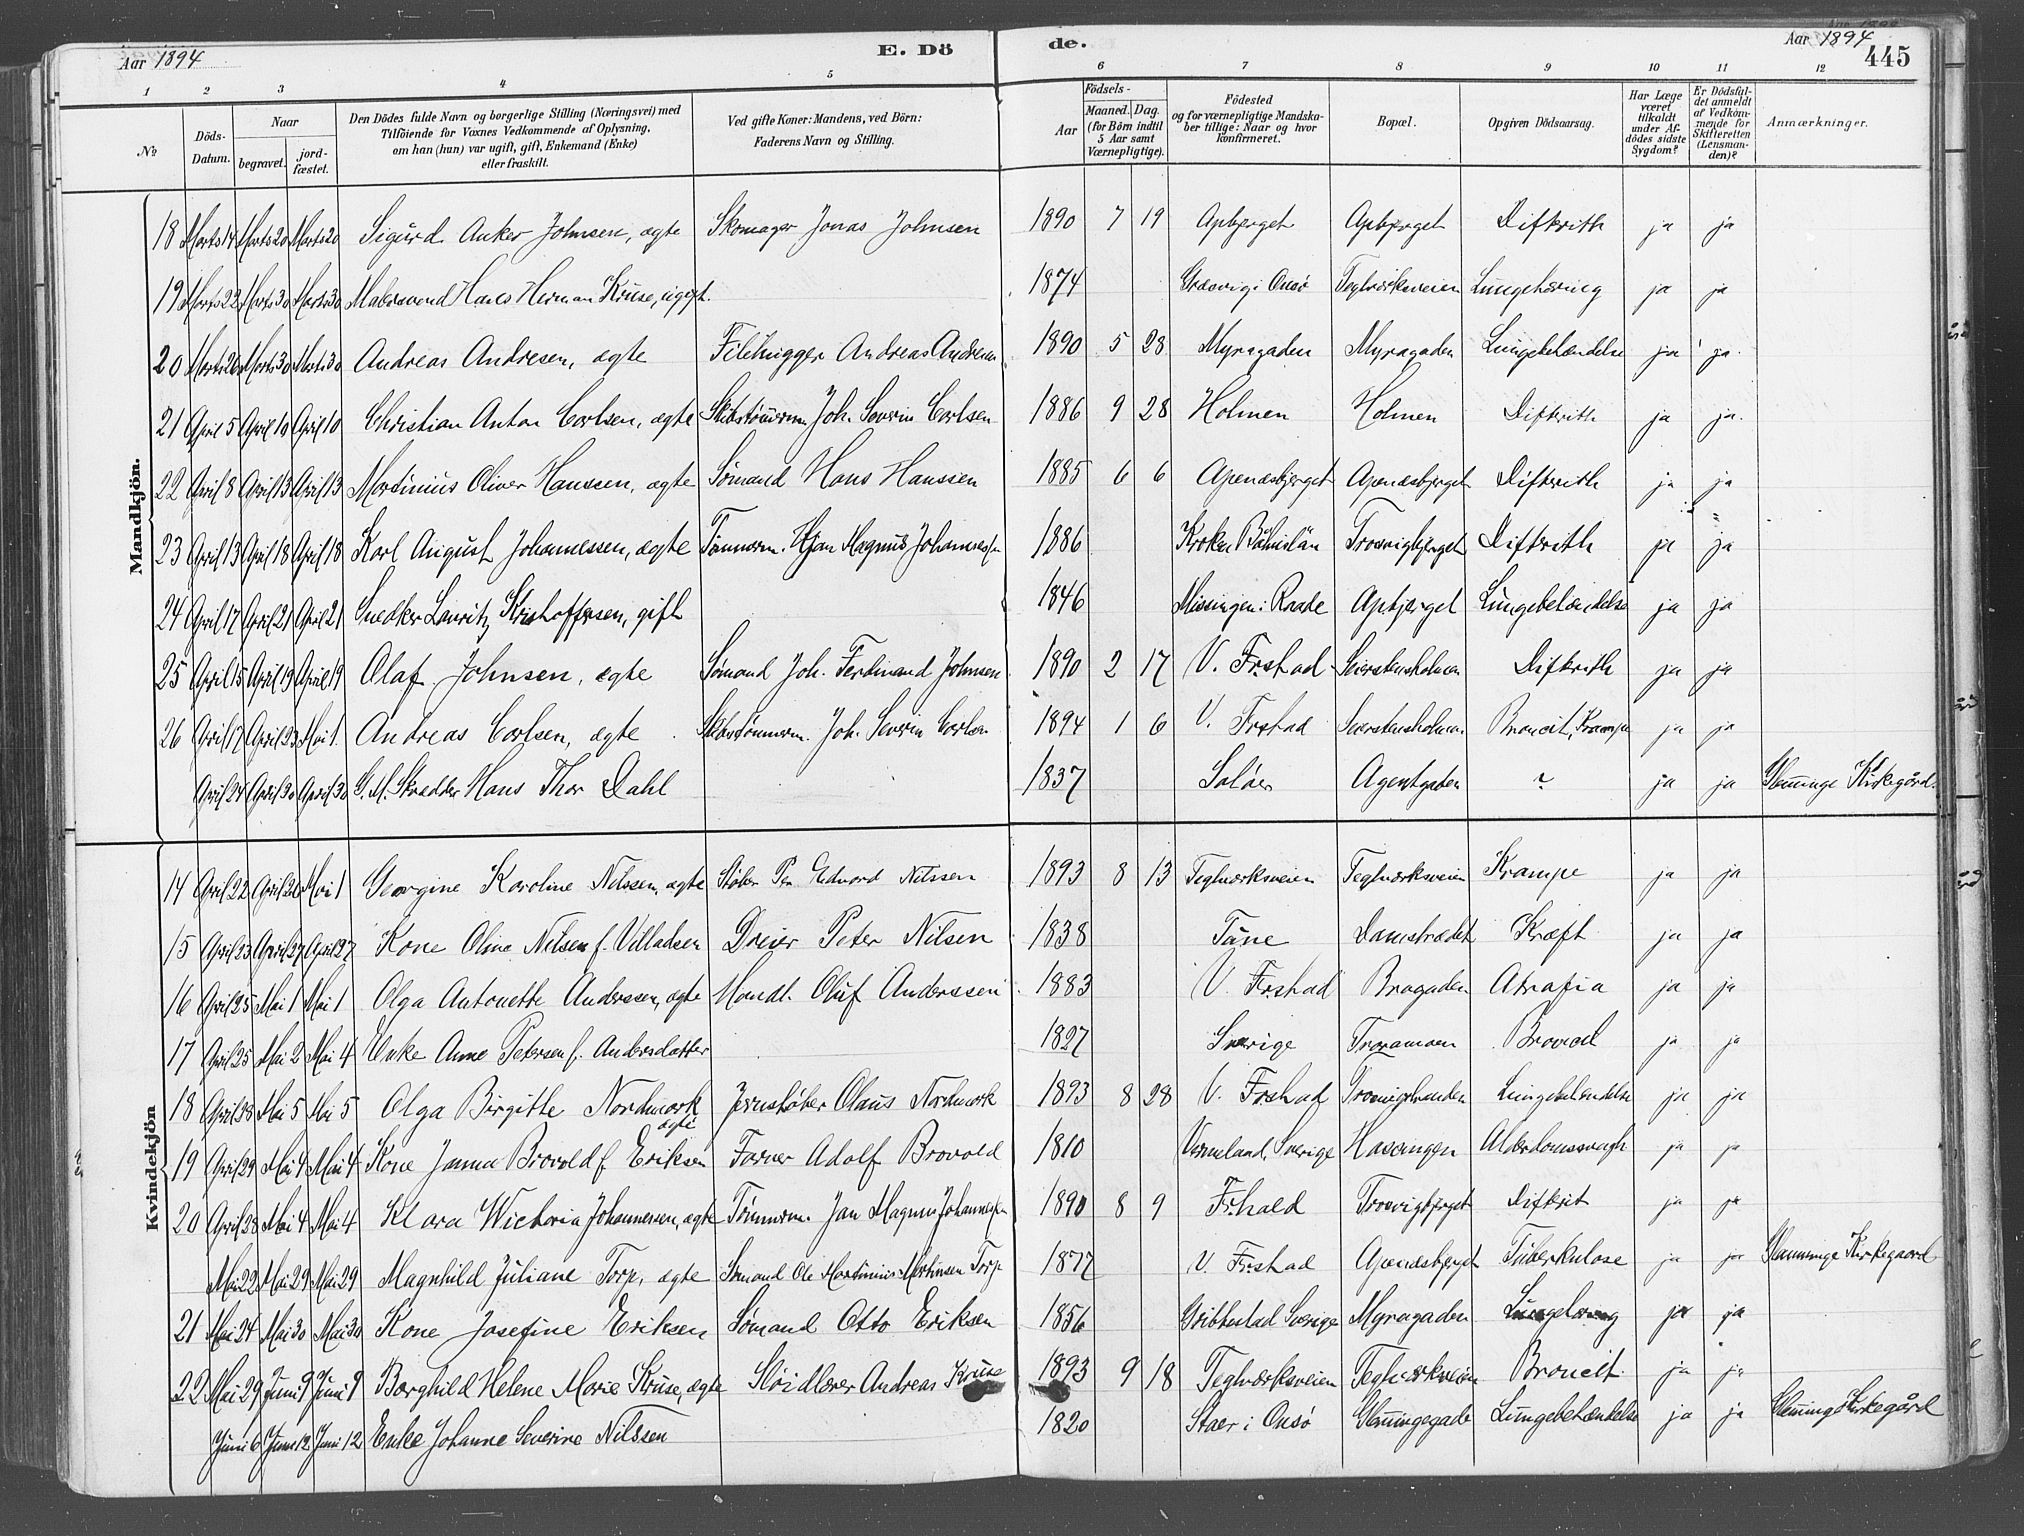 Aar 1894
E. Döde.
Aar 1894
445
1 2 3 4 5 6 7 8 9 10 11 12
№
Döds-Datum.
Naar
begravet.
jord-fæstet.
Den Dödes fulde Navn og borgerlige Stilling (Næringsvei) med
Tilföiende for Voxnes Vedkommende af Oplysning,
om han (hun) var ugift, gift, Enkemand (Enke)
eller fraskilt.
Ved gifte Koner: Mandens, ved Börn:
Faderens Navn og Stilling.
Födsels-
Aar
Maaned. Dag.
(for Börn indtil
5 Aar samt
Værnepligtige).
Födested
og for værnepligtige Mandska-
ber tillige: Naar og hvor
konfirmeret.
Bopæl.
Opgiven Dödsaarsag.
Har Læge
været
tilkaldt
under Af-
dödes sidste
Sygdom?
Er Dödsfal-
det anmeldt
af Vedkom-
mende for
Skifteretten
(Lensman-
den)?
Anmærkninger.
Mandkjön.
18 Marts 14 Marts 20 Marts 20 Sigurd Anker Johnsen, ægte Skomager Jonas Johnsen 1890 7 19 Apbjerget Apbjerget Difterith ja ja
19 Marts 22 Marts 30 Marts 30 Malersvend Hans Herman Kruse, ugift. 1874 Græsvig i Onsø Teglværksveien Lungetæring ja ja
20 Marts 26 Marts 30 Marts 30 Andreas Andresen, ægte Filehugger Andreas Andresen 1890 5 28 Myragaden Myragaden Lungebetændelse ja ja.
21 April 5 April 10 April 10 Christian Anton Carlsen, ægte Skibstømmerm. Joh. Severin Carlsen 1886 9 28 Holmen Holmen Difterith ja ja.
22 April 8 April 13 April 13 Martinius Oliver Hanssen, ægte Sømand Hans Hanssen 1885 6 6 Apenæsbjerget Apenæsbjerget Difterith ja ja
23 April 13 April 18 April 18 Karl August Johannessen, ægte Tømmerm. Jan Magnus Johannessen 1886 Kroken Båhuslän Trosvigbjerget Difterith ja ja
24 April 17 April 21 April 21 Snedker Lauritz Kristoffersen, gift 1846 Missingen i Raade Apbjerget Lungebetændelse ja ja
25 April 15 April 19 April 19 Olaf Johnsen, ægte Sømand Joh. Ferdinand Johnsen 1890 2 17 V. Frstad Seierstensholmen Difterith ja ja
26 April 17 April 23 Mai 1. Andreas Carlsen, ægte Skibstømmerm. Joh. Severin Carlsen 1894 1 6 V. Frstad Seierstensholmen Broncit, Krampe ja ja
April 24 April 30 April 30 G. M. Skrædder Hans Thor Dahl 1837 Soløer Agentgaden ? ja ja Glemminge Kirkegård.
Kvindekjön
14 April 22 April 26 Mai 1 Georgine Karoline Nilssen, ægte Støber Per Edvard Nilssen 1893 8 13 Teglværksveien Teglværksveien Krampe ja ja
15 April 23 April 27 April 27 Kone Oline Nilsen f. Villadsen Dreier Peter Nilsen 1838 Tune Damstrædet Kræft ja ja
16 April 25 Mai 1 Mai 1 Olga Antonette Anderssen, ægte Handl. Oluf Anderssen 1883 V. Frstad Bragaden Atrofia ja ja
17 April 25 Mai 2 Mai 4 Enke Anne Petersen f. Andersdatter 1827 Sverige Traramoen Broncit ja ja
18 April 28 Mai 5 Mai 5 Olga Birgitte Nordmark ægte Jernstøber Olaus Nordmark 1893 8 28 V. Frstad Trosvigstranden Lungebetændelse ja ja
19 April 29 Mai 4 Mai 4 Kone Janna Brovold f. Eriksen Farver Adolf Brovold 1810 Vermeland, Sverige Hassingen Alderdomssvagh ja ja
20 April 28 Mai 4 Mai 4 Klara Wictoria Johannessen, ægte Tømmerm. Jan Magnus Johannessen 1890 8 9 Frhald Trosvigbjerget Difterit ja ja
Mai 22 Mai 29 Mai 29 Magnhild Juliane Torp, ægte Sømand Ole Martinius Mortensen Torp 1877 V. Frstad Apenæsbjerget Tuberkulose ja ja Glemminge Kirkegaard
21 Mai 24 Mai 30 Mai 30 Kone Josefine Eriksen Sømand Otto Eriksen 1856 Gribbestad Sverige Myragaden Lungetæring ja ja
22 Mai 29 Juni 9 Juni 9 Borghild Helene Marie Kruse, ægte Sløidlærer Andreas Kruse 1893 9 18 Teglværksveien Teglværksveien Broncit ja ja
Juni 6 Juni 12 Juni 12 Enke Johanne Severine Nilssen 1820 Staer i Onsø Glemmingegade Lungebetændelse ja ja Glemminge Kirkegård